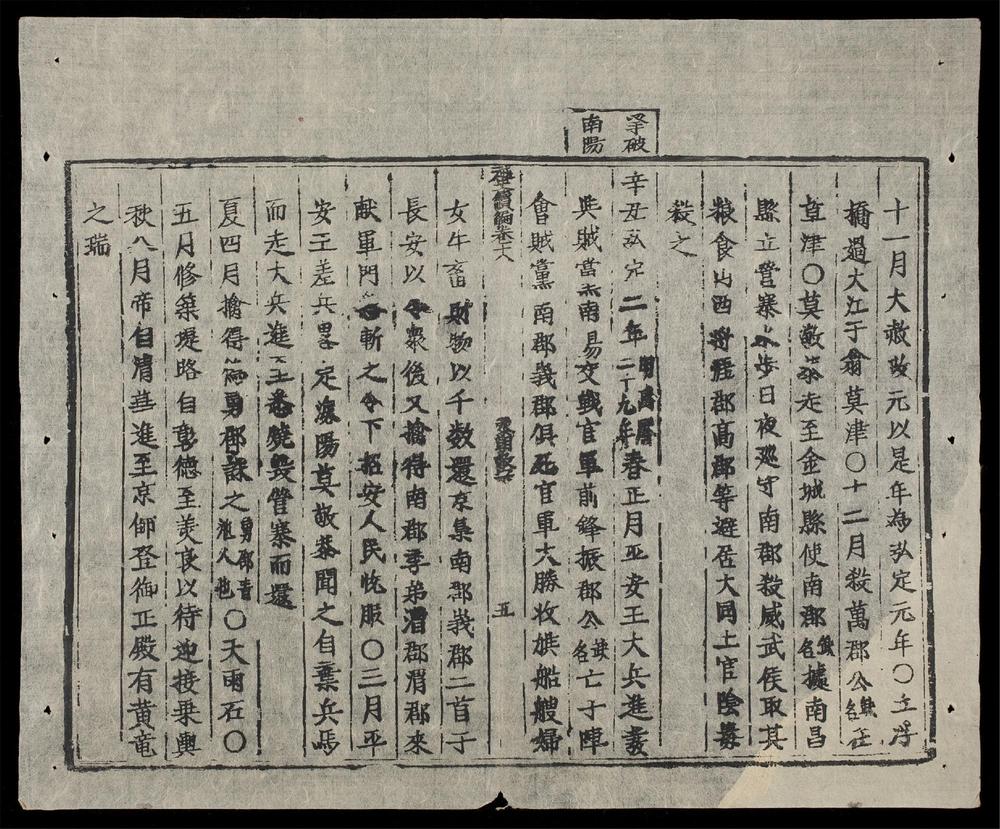 十一月大赦改元以是年為弘定元年○立浮
橋過大江于翁莫津○十二月殺萬郡公缺名在
草津○莫敬恭走至金城縣使南郡缺名據南昌
縣立營寨水步日夜巡守南郡殺威武侯取其
粮食山西將經郡高郡等避居大同土官陰募
殺之
擊破
南陽
辛丑弘定二年明萬曆二十九年春正月平安王大兵進
與賊當南易交戰官軍前鋒振郡公缺名亡于陣
會賊黨南郡義郡俱死官軍大勝收旗船艘婦
續編卷十八
五
女牛畜財物以千数還京集南郡義郡二首于
長安以令衆後又擒得南郡季弟渭郡渭郡來
献軍門命斬之令下招安人民忱服○三月平
安王差兵畧定海陽莫敬恭聞之自棄兵馬
而走大兵進至悉燒毀管寨而還
夏四月擒得勇郡誅之勇郡青池人也○天雨石○
五月修築堤路自彰德至美良以待迎接乗輿
秋八月帝自清華進至京師登御正殿有黄竜
之瑞